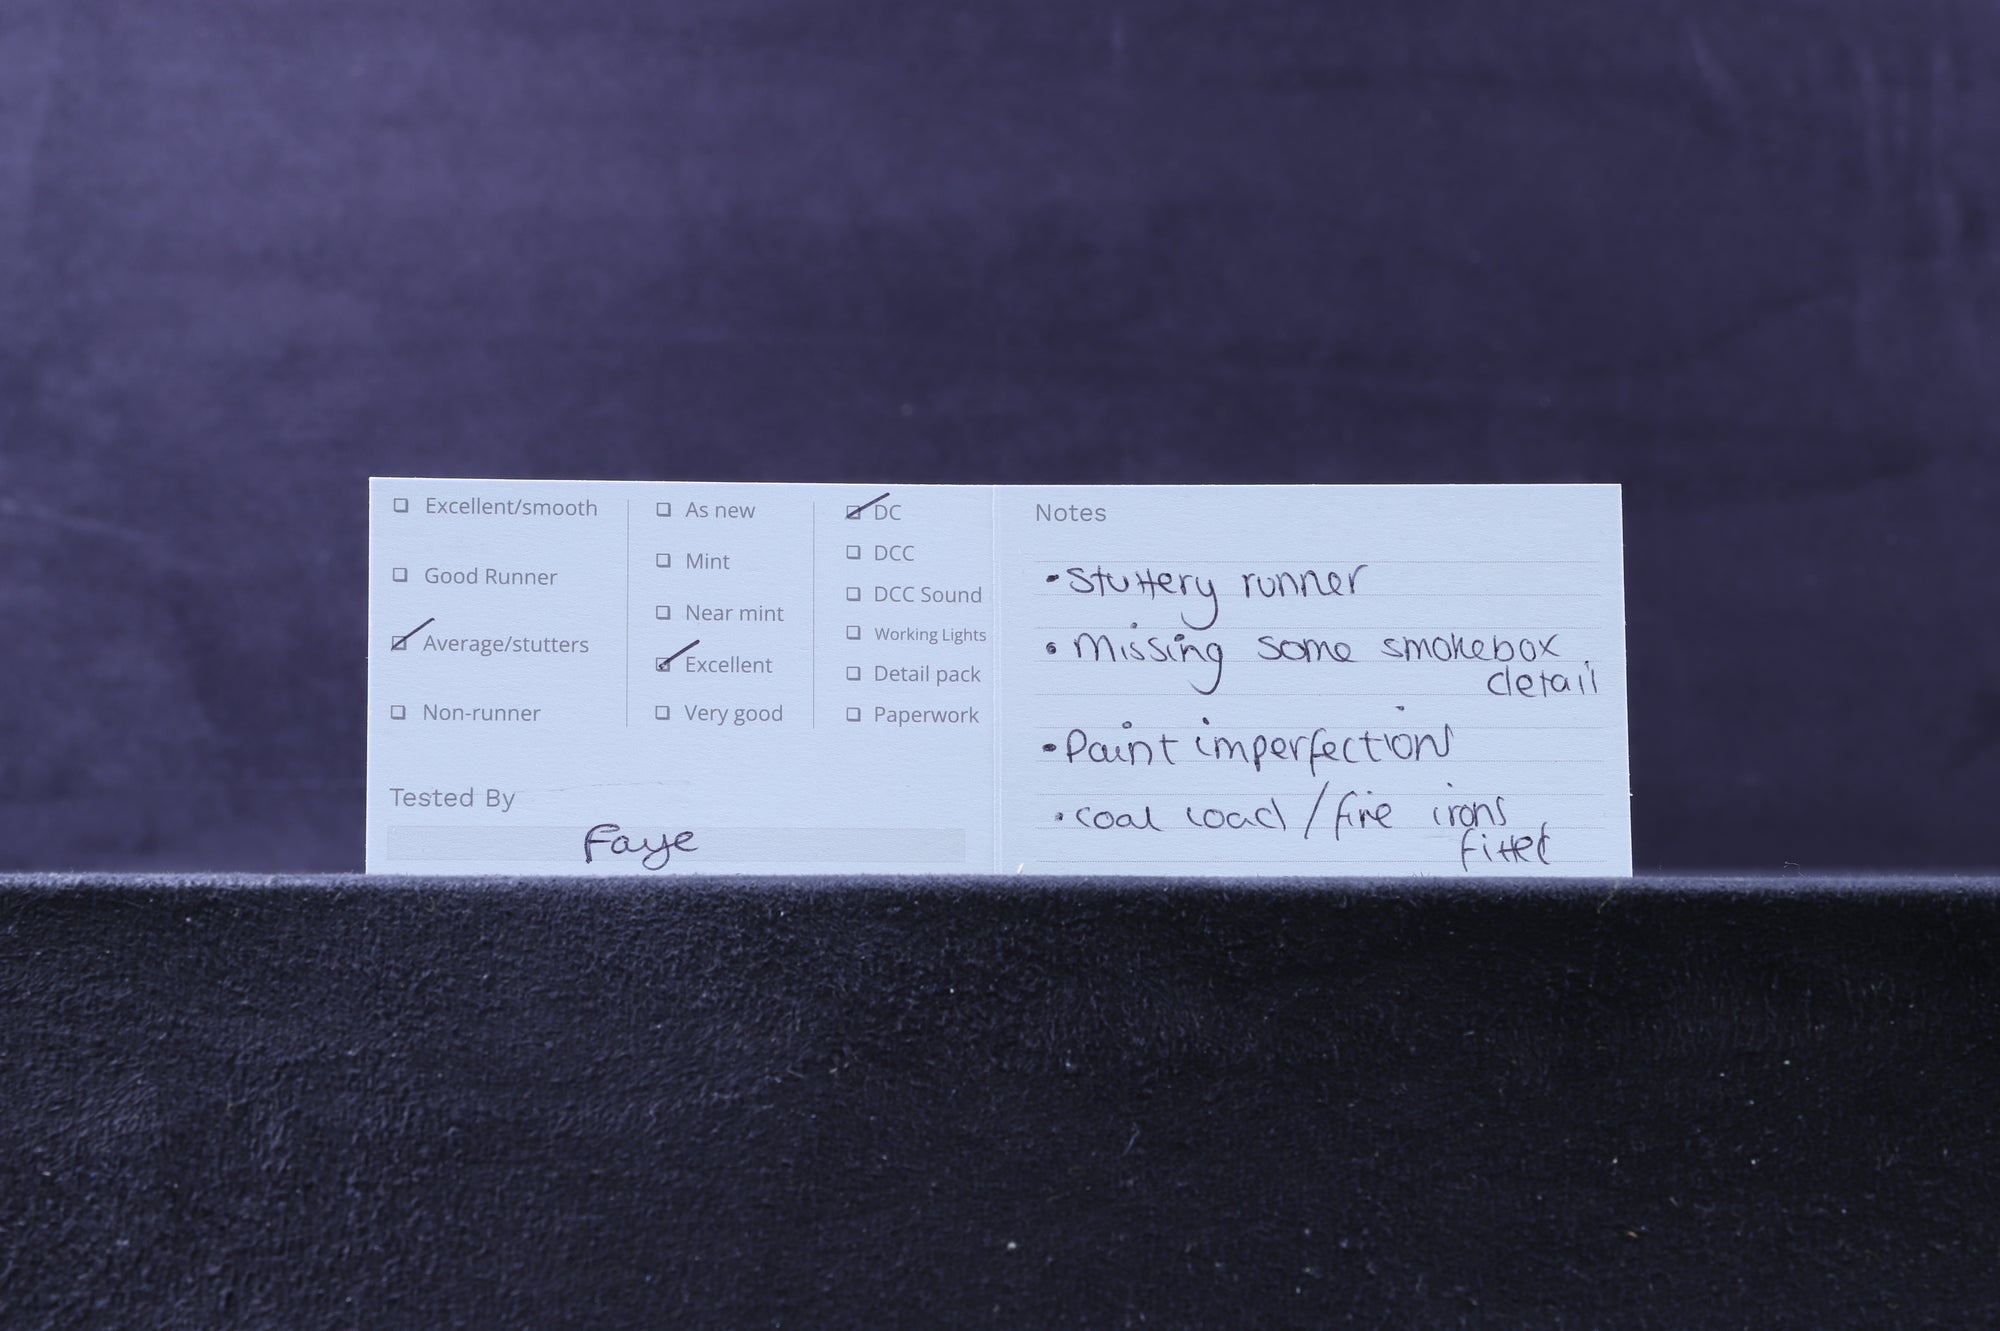 Excellent/smooth
Good Runner
Average/stutters
Non-runner
As new
Mint
Near mint
Excellent
Very good
DC
DCC
DCC Sound
Working Lights
Detail pack
Paperwork
Tested By
Faye
Notes
• Stuttery runner
• Missing some smokebox
detail
• Paint imperfections
• coal load / fire irons
fitted